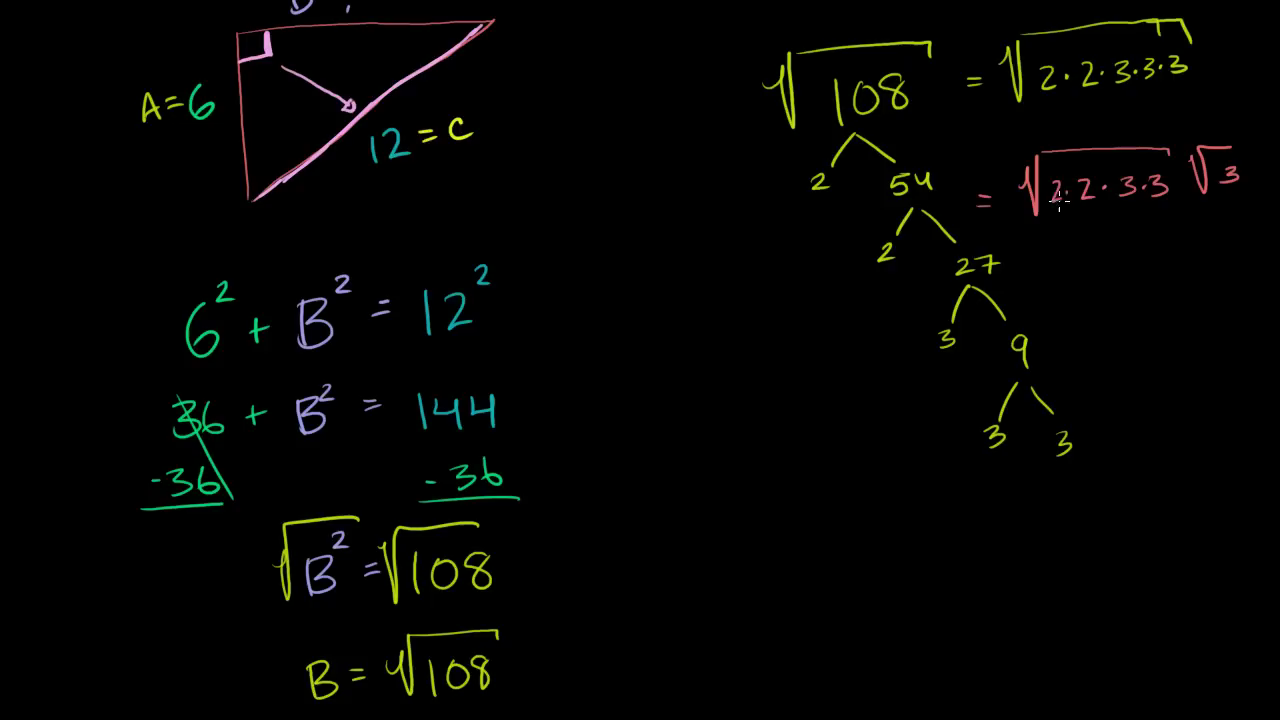 A=6
12 = C
6² + B² = 12²
36 + B² = 144
-36 -36
√B² = √108
B = √108
√108 = √2·2·3·3·3
2 54
= √2·2·3·3 √3
2 27
3 9
3 3